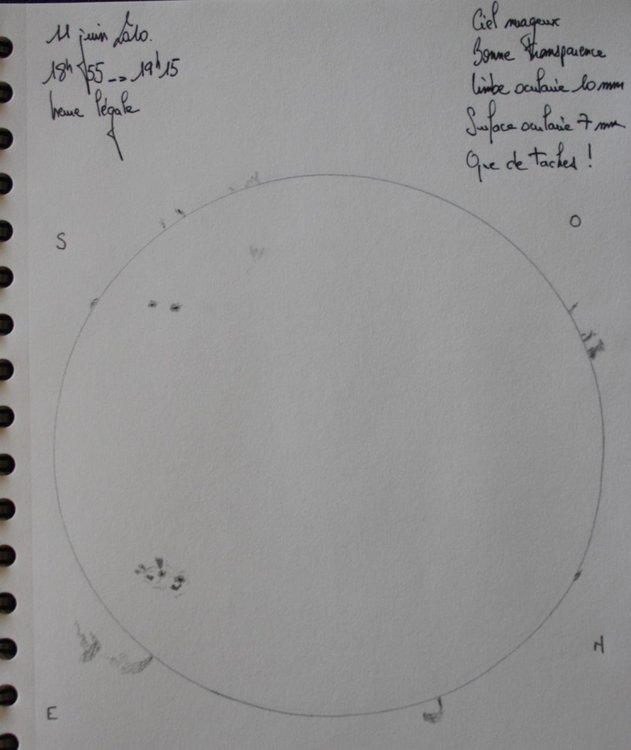 11 juin 2010.
18h 55 --> 19h15
heure légale
Ciel nuageux
Bonne Transparence
Limbe oculaire 10 mm
Surface oculaire 7 mm
Que de taches !
S
O
N
E